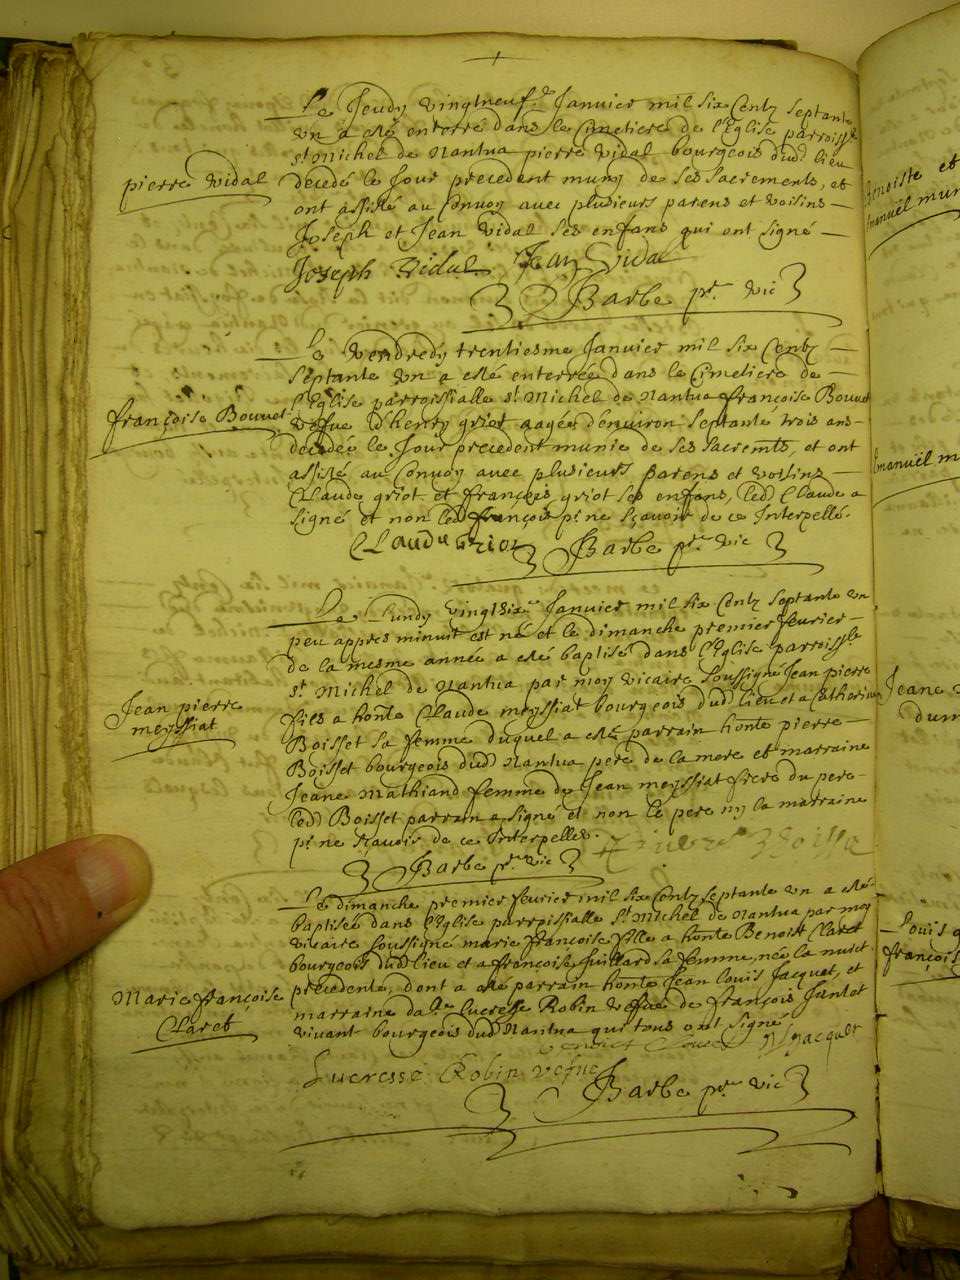 Le Jeudy vingtneuf.e Janvier mil six Centz septante
un a esté enterré dans le Cimetiere de l'Eglise parroiss.le
st Michel de Nantua pierre Vidal bourgeois dud lieu
pierre Vidal
decedé le Jour precedent muny de ses sacrements, et
ont assisté au Convoy avec plusieurs parens et voisins
Joseph et Jean Vidal ses enfans qui ont signé
Joseph Vidal Jean Vidal
Barbe ptre vic
Le Vendredy trentiesme Janvier mil six Centz
septante un a esté enterrée dans le Cimetiere de
l'Eglise parroissialle st Michel de Nantua françoise Bouvet
françoise Bouvet
vefve d'henry griot aagée d'environ septante trois ans
decedée le Jour precedent munie de ses sacremts, et ont
assisté au Convoy avec plusieurs parens et voisins
Claude griot et françois griot ses enfans, led Claude a
signé et non led françois pr ne sçavoir de ce Interpellé.
Claude Griot
Barbe ptre vic
Le Lundy vingtsix.e Janvier mil six Centz septante un
peu appres minuit est né et le dimanche premier febvrier
de la mesme année a esté baptisé dans l'Eglise parroiss.le
st Michel de Nantua par moy vicaire soussigné Jean pierre
Jean pierre
meyssiat
fils a honte Claude meyssiat bourgeois dud lieu et a Catherine
Boisset sa femme duquel a esté parrain honte pierre
Boisset bourgeois dud Nantua pere de la mere et marraine
Jeane Mathiand femme de Jean meyssiat frere du pere
led Boisset parrain a signé et non le pere ny la marraine
pr ne sçavoir de ce Interpellés.
Barbe ptre vic
Le dimanche premier febvrier mil six Centz septante un a esté
baptisée dans l'Eglise parroissialle st Michel de Nantua par moy
vicaire soussigné marie françoise fille a honte Benoist Claret
bourgeois dud lieu et a françoise Juillard sa femme, née la nuict
precedente, dont a esté parrain honte Jean Louis Jacquet, et
Marie françoise
Claret
marraine da.lle Lucresse Robin vefve de françois
vivant bourgeois dud Nantua qui tous ont signé
Jacquet
Lucresse Robin vefve
Barbe ptre vic